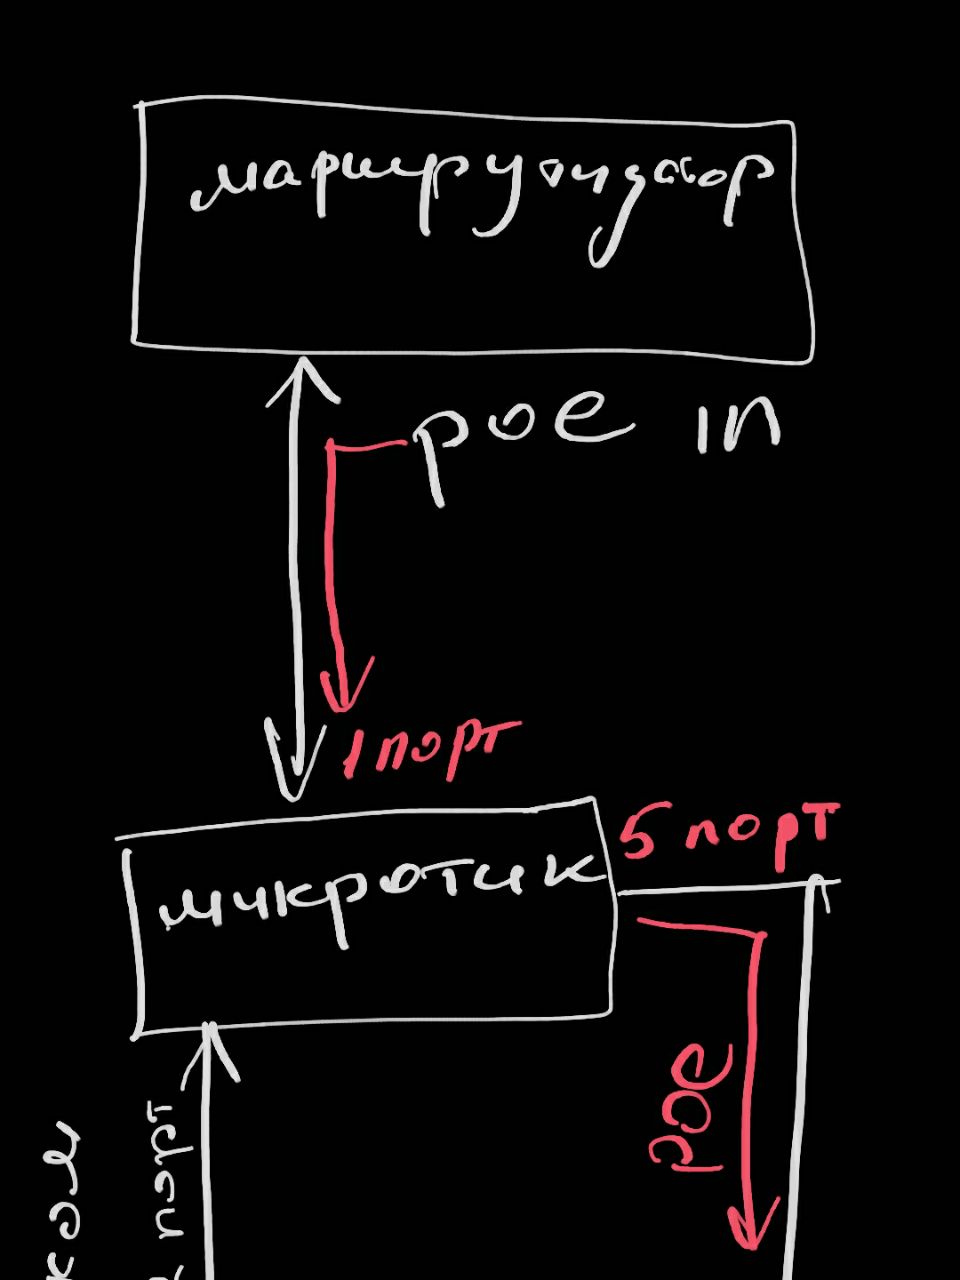 маршрутизатор
poe in
1 порт
5 порт
микротик
poe
порт